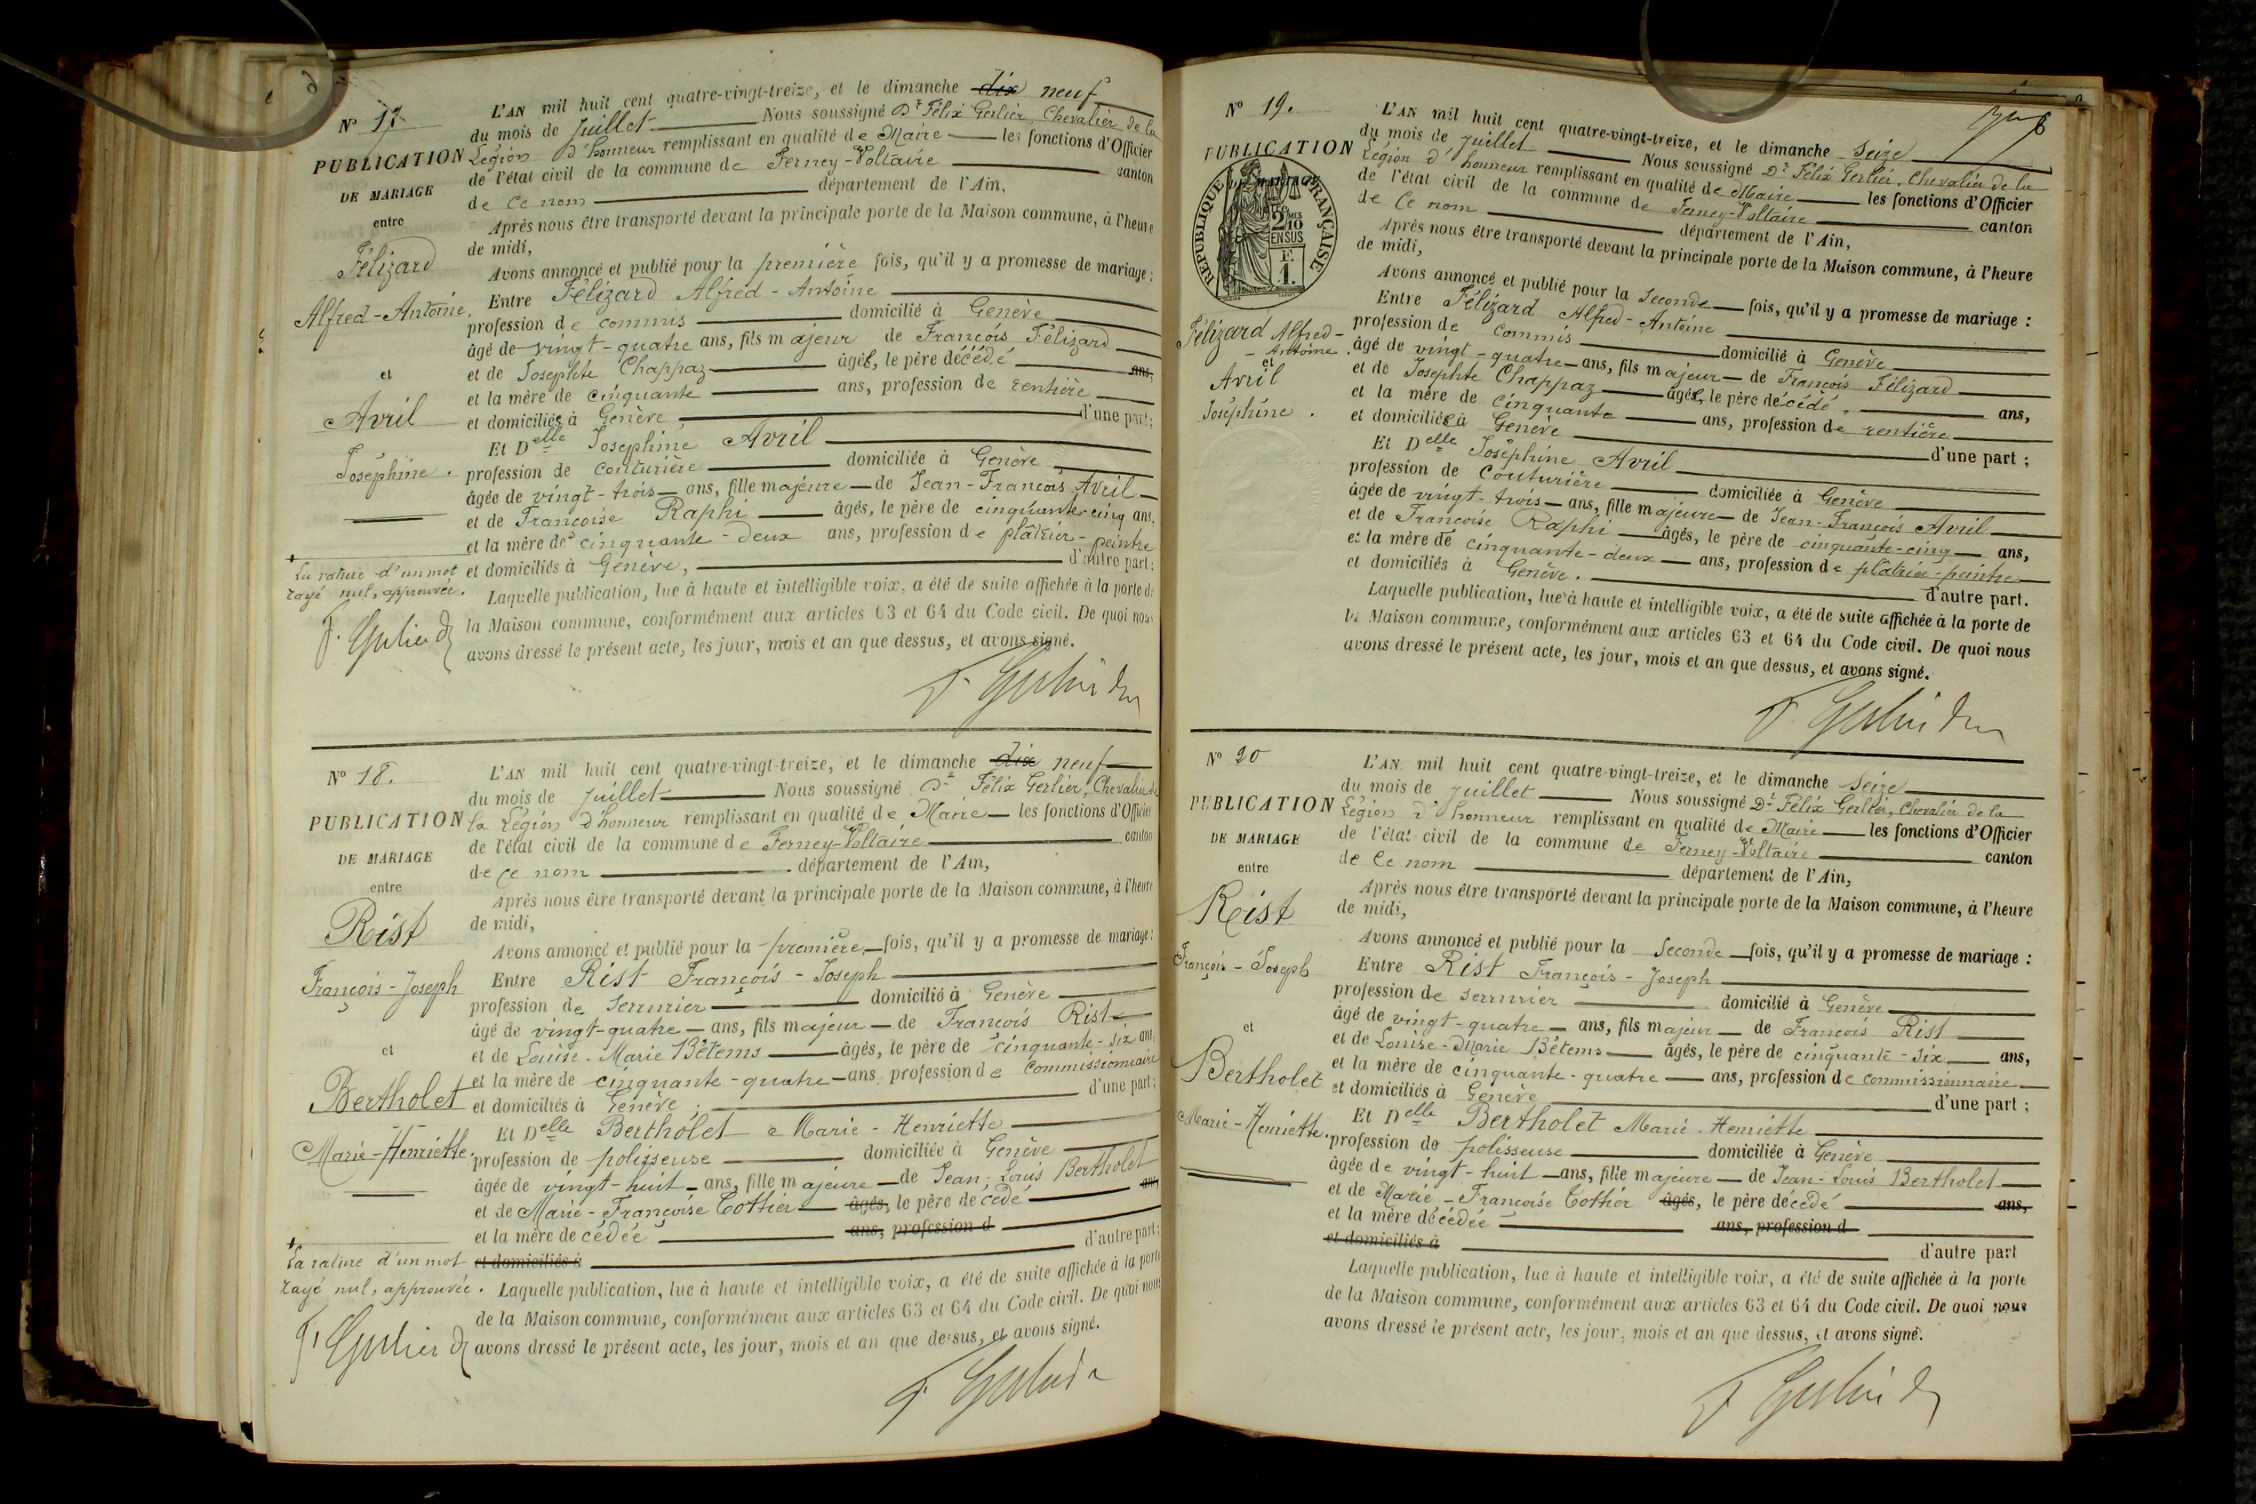 N° 17
PUBLICATION
DE MARIAGE
entre
Félizard
Alfred-Antoine.
et
Avril
Joséphine.
La rature d'un mot
rayé nul, approuvée.
L'AN mil huit cent quatre-vingt-treize, et le dimanche dix neuf
du mois de Juillet Nous soussigné Dr Félix Gerlier, Chevalier de la
Légion d'honneur remplissant en qualité de Maire les fonctions d'Officier
de l'état civil de la commune de Ferney-Voltaire canton
de ce nom département de l'Ain,
Après nous être transporté devant la principale porte de la Maison commune, à l'heure
de midi,
Avons annoncé et publié pour la première fois, qu'il y a promesse de mariage :
Entre Félizard Alfred-Antoine
profession de commis domicilié à Genève
âgé de vingt-quatre ans, fils majeur de François Félizard
et de Josephte Chappaz âgés, le père décédé ans,
et la mère de cinquante ans, profession de rentière
et domiciliés à Genève d'une part;
Et Delle Joséphine Avril
profession de couturière domiciliée à Genève
âgée de vingt-trois ans, fille majeure de Jean-François Avril
et de Françoise Raphi âgés, le père de cinquante-cinq ans,
et la mère de cinquante-deux ans, profession de plâtrier-peintre
et domiciliés à Genève, d'autre part;
Laquelle publication, lue à haute et intelligible voix, a été de suite affichée à la porte de
la Maison commune, conformément aux articles 63 et 64 du Code civil. De quoi nous
avons dressé le présent acte, les jour, mois et an que dessus, et avons signé.
N° 18.
PUBLICATION
DE MARIAGE
entre
Rist
François-Joseph
et
Bertholet
Marie-Henriette.
La rature d'un mot
rayé nul, approuvée.
L'AN mil huit cent quatre-vingt-treize, et le dimanche dix neuf
du mois de Juillet Nous soussigné Dr Félix Gerlier, Chevalier de
la Légion d'honneur remplissant en qualité de Maire les fonctions d'Officier
de l'état civil de la commune de Ferney-Voltaire canton
de ce nom département de l'Ain,
Après nous être transporté devant la principale porte de la Maison commune, à l'heure
de midi,
Avons annoncé et publié pour la première fois, qu'il y a promesse de mariage :
Entre Rist François-Joseph
profession de serrurier domicilié à Genève
âgé de vingt-quatre ans, fils majeur de François Rist
et de Louise-Marie Bétems âgés, le père de cinquante-six ans,
et la mère de cinquante-quatre ans, profession de commissionnaire
et domiciliés à Genève, d'une part;
Et Delle Bertholet Marie-Henriette
profession de polisseuse domiciliée à Genève
âgée de vingt-huit ans, fille majeure de Jean-Louis Bertholet
et de Marie-Françoise Cottier âgés, le père décédé ans
et la mère décédée ans, profession d
et domiciliés à d'autre part;
Laquelle publication, lue à haute et intelligible voix, a été de suite affichée à la porte
de la Maison commune, conformément aux articles 63 et 64 du Code civil. De quoi nous
avons dressé le présent acte, les jour, mois et an que dessus, et avons signé.
N° 19.
PUBLICATION
DE MARIAGE
RÉPUBLIQUE FRANÇAISE
2/10
EN SUS
F.
1.
Félizard Alfred-
-Antoine.
et
Avril
Joséphine.
L'AN mil huit cent quatre-vingt-treize, et le dimanche seize
du mois de Juillet Nous soussigné Dr Félix Gerlier, Chevalier de la
Légion d'honneur remplissant en qualité de Maire les fonctions d'Officier
de l'état civil de la commune de Ferney-Voltaire canton
de ce nom département de l'Ain,
Après nous être transporté devant la principale porte de la Maison commune, à l'heure
de midi,
Avons annoncé et publié pour la seconde fois, qu'il y a promesse de mariage :
Entre Félizard Alfred-Antoine
profession de commis domicilié à Genève
âgé de vingt-quatre ans, fils majeur de François Félizard
et de Josephte Chappaz âgés, le père décédé, ans,
et la mère de cinquante ans, profession de rentière
et domiciliés à Genève d'une part ;
Et Delle Joséphine Avril
profession de couturière domiciliée à Genève
âgée de vingt-trois ans, fille majeure de Jean-François Avril
et de Françoise Raphi âgés, le père de cinquante-cinq ans,
et la mère de cinquante-deux ans, profession de plâtrier-peintre
et domiciliés à Genève. d'autre part.
Laquelle publication, lue à haute et intelligible voix, a été de suite affichée à la porte de
la Maison commune, conformément aux articles 63 et 64 du Code civil. De quoi nous
avons dressé le présent acte, les jour, mois et an que dessus, et avons signé.
N° 20
PUBLICATION
DE MARIAGE
entre
Rist
François-Joseph
et
Bertholet
Marie-Henriette.
L'AN mil huit cent quatre-vingt-treize, et le dimanche seize
du mois de Juillet Nous soussigné Dr Félix Gerlier, Chevalier de la
Légion d'honneur remplissant en qualité de Maire les fonctions d'Officier
de l'état civil de la commune de Ferney-Voltaire canton
de ce nom département de l'Ain,
Après nous être transporté devant la principale porte de la Maison commune, à l'heure
de midi,
Avons annoncé et publié pour la seconde fois, qu'il y a promesse de mariage :
Entre Rist François-Joseph
profession de serrurier domicilié à Genève
âgé de vingt-quatre ans, fils majeur de François Rist
et de Louise-Marie Bétems âgés, le père de cinquante-six ans,
et la mère de cinquante-quatre ans, profession de commissionnaire
et domiciliés à Genève d'une part ;
Et Delle Bertholet Marie-Henriette
profession de polisseuse domiciliée à Genève
âgée de vingt-huit ans, fille majeure de Jean-Louis Bertholet
et de Marie-Françoise Cottier âgés, le père décédé ans,
et la mère décédée ans, profession d
et domiciliés à d'autre part
Laquelle publication, lue à haute et intelligible voix, a été de suite affichée à la porte
de la Maison commune, conformément aux articles 63 et 64 du Code civil. De quoi nous
avons dressé le présent acte, les jour, mois et an que dessus, et avons signé.